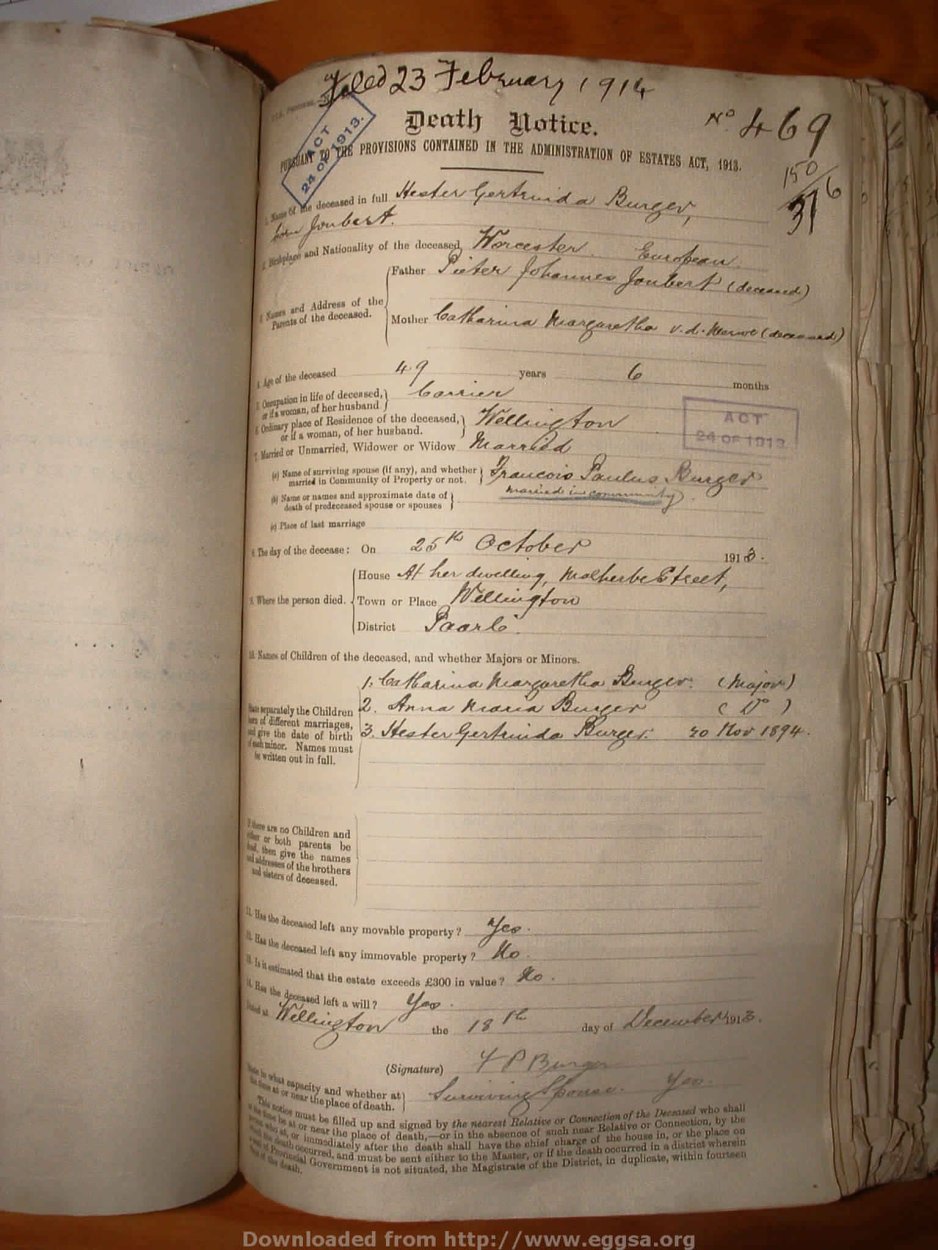 Filed 23 February 1914
Death Notice.
No 469
PURSUANT TO THE PROVISIONS CONTAINED IN THE ADMINISTRATION OF ESTATES ACT, 1913.
ACT
24 OF 1913.
150/6
31
1. Name of the deceased in full Hester Gertruida Burger,
born Joubert.
2. Birthplace and Nationality of the deceased Worcester European
3. Names and Address of the Parents of the deceased.
Father Pieter Johannes Joubert (deceased)
Mother Catharina Margaretha v.d. Merwe (deceased)
4. Age of the deceased 49 years 6 months
5. Occupation in life of deceased,
or if a woman, of her husband Carrier
6. Ordinary place of Residence of the deceased,
or if a woman, of her husband. Wellington
ACT
24 OF 1913
7. Married or Unmarried, Widower or Widow Married
(a) Name of surviving spouse (if any), and whether
married in Community of Property or not. Francois Paulus Burger
married in community
(b) Name or names and approximate date of
death of predeceased spouse or spouses
(c) Place of last marriage
8. The day of the decease: On 25th October 1913.
9. Where the person died.
House At her dwelling, Malherbe Street,
Town or Place Wellington
District Paarl.
10. Names of Children of the deceased, and whether Majors or Minors.
1. Catharina Margaretha Burger. (Major)
State separately the Children 2. Anna Maria Burger (Do)
born of different marriages,
and give the date of birth 3. Hester Gertruida Burger. 20 Nov 1894.
of each minor. Names must
be written out in full.
If there are no Children and
either or both parents be
dead, then give the names
and addresses of the brothers
and sisters of deceased.
11. Has the deceased left any movable property? Yes.
12. Has the deceased left any immovable property? No.
13. Is it estimated that the estate exceeds £300 in value? No.
14. Has the deceased left a will? Yes.
Dated at Wellington the 18th day of December 1913.
(Signature) F P Burger
State in what capacity and whether at
the time at or near the place of death. Surviving Spouse. Yes.
This notice must be filled up and signed by the nearest Relative or Connection of the Deceased who shall
at the time be at or near the place of death,—or in the absence of such near Relative or Connection, by the
person who at, or immediately after the death shall have the chief charge of the house in, or the place on
which the death occurred, and must be sent either to the Master, or if the death occurred in a district wherein
Provincial Government is not situated, the Magistrate of the District, in duplicate, within fourteen
days of the death.
Downloaded from http://www.eggsa.org